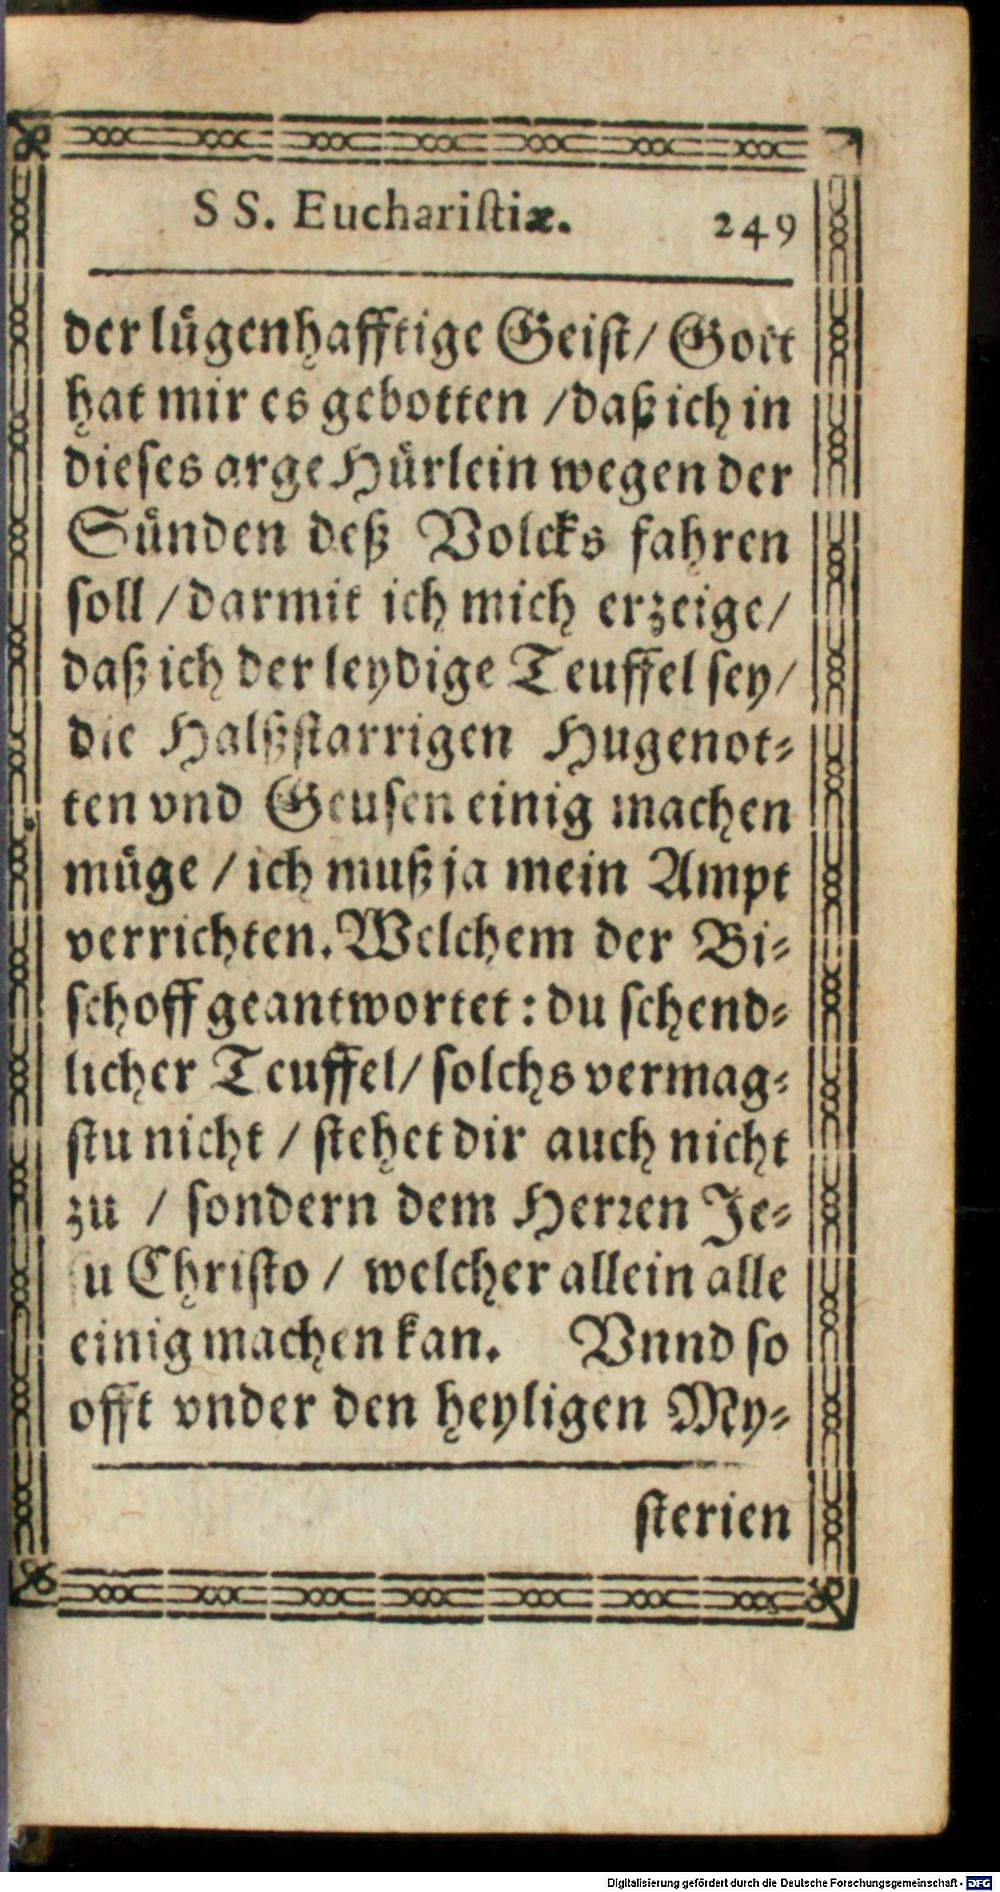 SS. Euchariſtiæ. 249
der lügenhafftige Geiſt/ Gott
hat mir es gebotten /daß ich in
dieſes arge Hürlein wegen der
Sünden deß Volcks fahren
ſoll /darmit ich mich erzeige/
daß ich der leydige Teuffel ſey/
die Halßſtarrigen Hugenot⸗
ten vnd Geuſen einig machen
müge / ich muß ja mein Ampt
verrichten. Welchem der Bi⸗
ſchoff geantwortet: du ſchend⸗
licher Teuffel/ ſolchs vermag⸗
ſtu nicht / ſtehet dir auch nicht
zu / ſondern dem Herꝛen Je⸗
ſu Chriſto / welcher allein alle
einig machen kan. Vnnd ſo
offt vnder den heyligen My⸗
ſterien
Digitalisierung gefördert durch die Deutsche Forschungsgemeinschaft - DFG